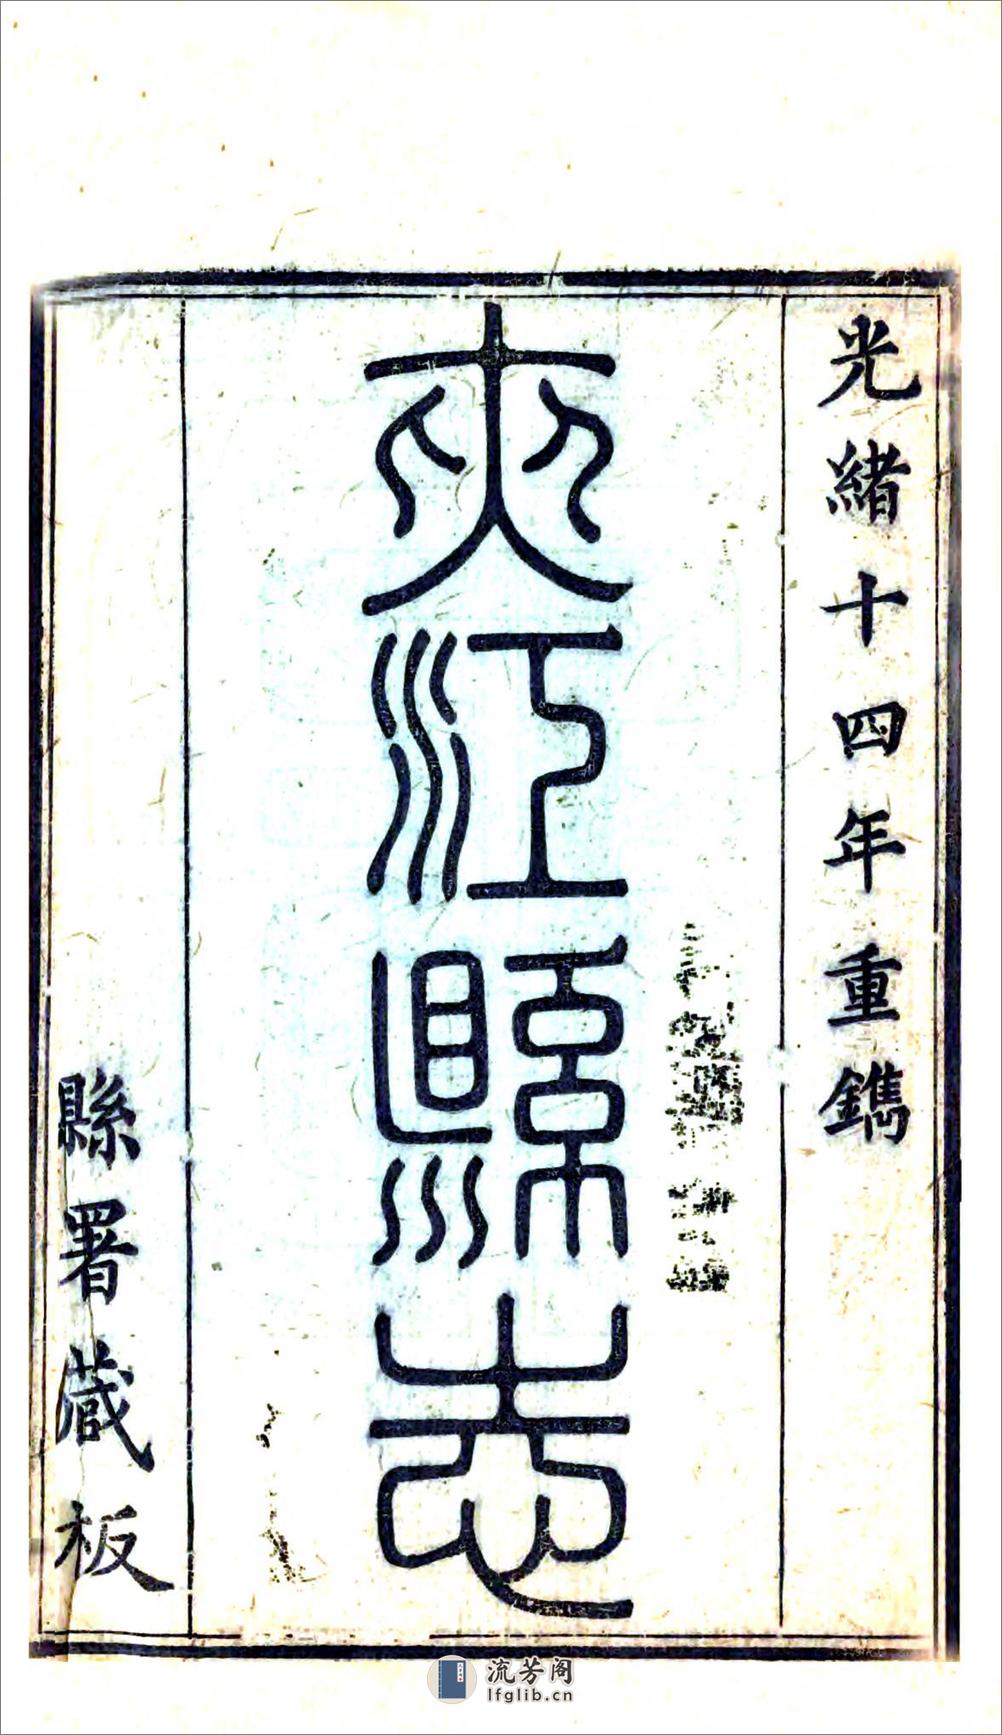 光緒十四年重鐫
夾江縣志
縣署藏板
流芳阁
lfglib.cn